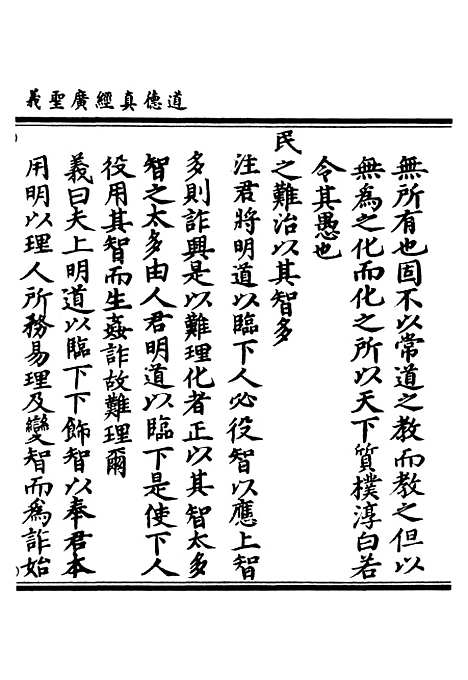 道德真經廣聖義
無所有也固不以常道之教而教之但以
無為之化而化之所以天下質樸淳白若
令其愚也
民之難治以其智多
注君將明道以臨下人必役智以應上智
多則詐興是以難理化者正以其智太多
智之太多由人君明道以臨下是使下人
役用其智而生姦詐故難理爾
義曰夫上明道以臨下下飾智以奉君本
用明以理人所務易理及變智而為詐始